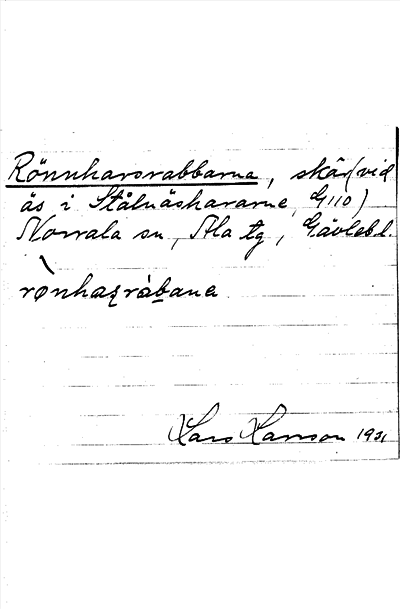 Rönnharsrabbarna, skär (vid
ås i Stålnäshararne, G110)
Norrala sn, Ala tg, Gävlebl.
rønhaʂrábana
Lars Hanson 1931